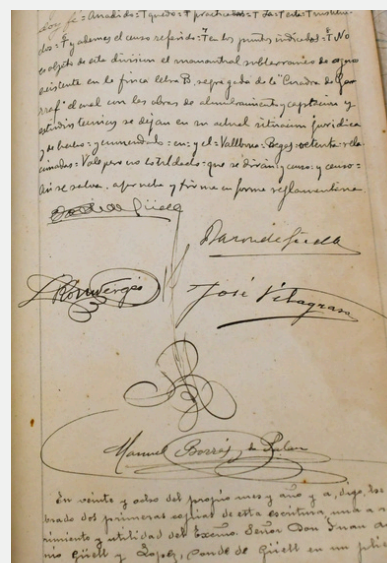 doy fe = Añadido = T quedo = T practicadas = T La = T esta = T
dos = T y ademas el censo referido = T en los puntos indicados = T No
es objeto de esta division el manantial subterraneo de agua
existente en la finca letra B, segregada de la "Cuadra de Gar
raf" el cual con las obras de alumbramiento y captacion y
estudios tecnicos se dejan en su actual situacion juridica
y de hecho = y enmendado = en = y el = Vallbona = Begas = setenta = rela
cionadas = Vale pero no lo tildado = que se dirán y censo = y censo =
Asi se salva, aprueba y firma en forma reglamentaria.
Conde de Güell
Baron de Güell
José Vilagrasa
Manuel Borrás de Palau
En veinte y ocho del propio mes y año y a, digo, he
brado dos primeras copias de esta escritura, una a
rimiento y utilidad del Excmo. Señor Don Juan An
nio Güell y Lopez, Conde de Güell en un